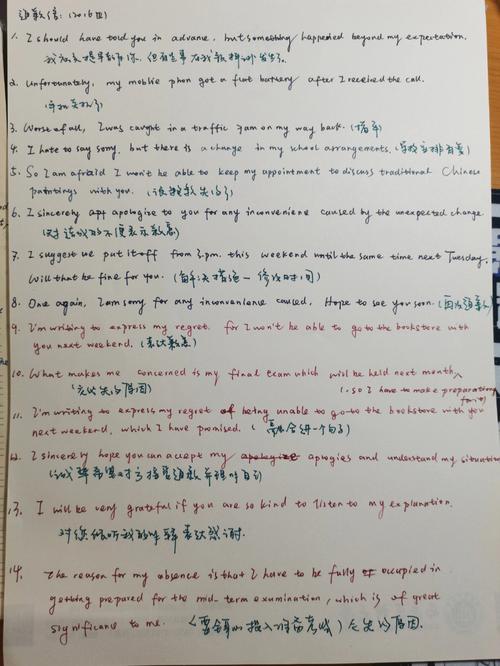 道歉信：(2016 III)
1. I should have told you in advance, but something happened beyond my expectation.
我应该提早告诉你，但有些事在我预料外发生了.
2. Unfortunately, my moblie phon got a flat battery after I received the call.
(手机没电了)
3. Worst of all, I was caught in a traffic jam on my way back. (堵车)
4. I hate to say sorry, but there is a change in my school arrangements. (学校安排有变)
5. So I am afraid I won't be able to keep my appointment to discuss traditional Chinese
paintings with you. (没按约)
6. I sincerely apologize to you for any inconvenience caused by the unexpected change.
(对造成的不便表示歉意)
7. I suggest we put it off from 3 p.m. this weekend until the same time next Tuesday.
Will that be fine for you. (修改时间)
8. Once again, I am sorry for any inconvenience caused. Hope to see you soon. (再次道歉)
9. I'm writing to express my regret, for I won't be able to go to the bookstore with
you next weekend. (表达歉意)
10. What makes me concerned is my final exam which will be held next month,
(失约原因) (, so I have to make preparations
for it)
11. I'm writing to express my regret of being unable to go to the bookstore with you
next weekend, which I have promised. (合并一个句子)
12. I sincerely hope you can accept my apologies and understand my situation
(诚挚希望对方接受道歉并理解自己)
13. I will be very grateful if you are so kind to listen to my explanation.
对您倾听我的解释表达感谢.
14. The reason for my absence is that I have to be fully occupied in
getting prepared for the mid-term examination, which is of great
significance to me. (需全身心投入准备考试) 失约原因.